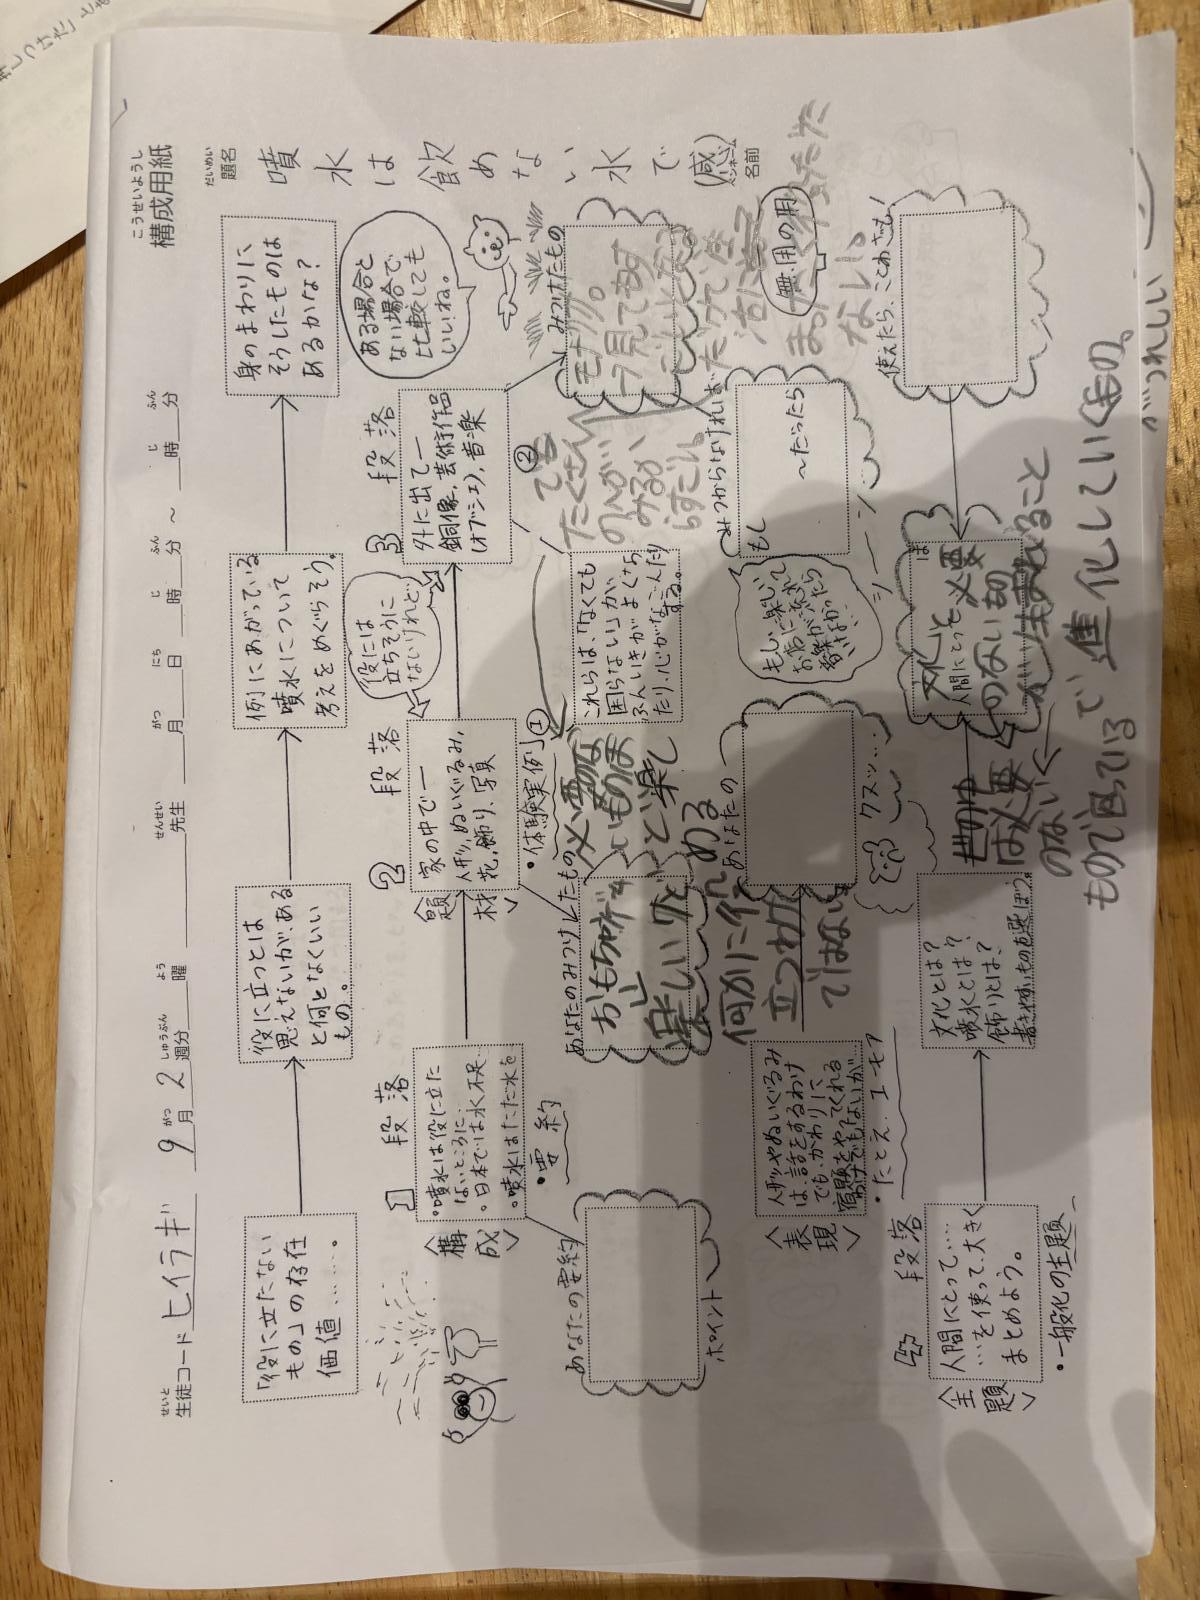 構成用紙
こうせいようし
生徒コード ヒイラギ 9月2週分 曜 先生 月 日 時 分 ~ 時 分
せいと がつ しゅうぶん よう せんせい がつ にち じ ふん じ ふん
題名
だいめい
噴水は飲めない水で(感)
名前
ペンネーム
「役に立たない
もの」の存在
価値……。
役に立つとは
思えないが、ある
と何となくいい
もの。
例にあがっている
噴水について
考えをめぐらそう。
身のまわりに
そうしたものは
あるかな?
ある場合と
ない場合で
比較しても
いいね。
〈構成〉
1段落
・噴水は役に立た
ないところに…
・日本では水不足…
・噴水はただ水を…
・要約
あなたの要約
ポイント
〈題材〉
2段落
家の中で―
人形、ぬいぐるみ、
花、飾り、写真
・体験実例①
役には
立ちそうに
ないけれど…
3段落
外に出て―
銅像、芸術作品
(オブジェ)、音楽
②
みつけたもの
あなたのみつけたもの
おもちゃ
楽しいけど
何かに
立つわけ
ではない
必要のな
いもの
これらは、「なくても
困らない」が、
ふんいきがよくなっ
たり、心がなごんだり
する。
たくさん
モナリザ。
〈表現〉
人形やぬいぐるみ
は、話をするわけ
でも、かわりに
宿題をやってくれる
わけでもないが
・たとえ、ユーモア
あなたの
クスッ…
もし、楽しい
お店に楽しい
音楽が流れて
いなかったら
シーーン
みつからなければ…
もし
~だったら
無用の用
まった
ない。
使えたら、ことわざも!
〈主題〉
4段落
人間にとって……
…を使って、大きく
まとめよう。
・一般化の主題
文化とは?
噴水とは?
飾りとは?
書きやすいものを選ぼう。
文化とは
人間にとって必要
のない物
が生まれること
で進化していくもの。
世の中
は必要
のない
もので困っている
がうれしい